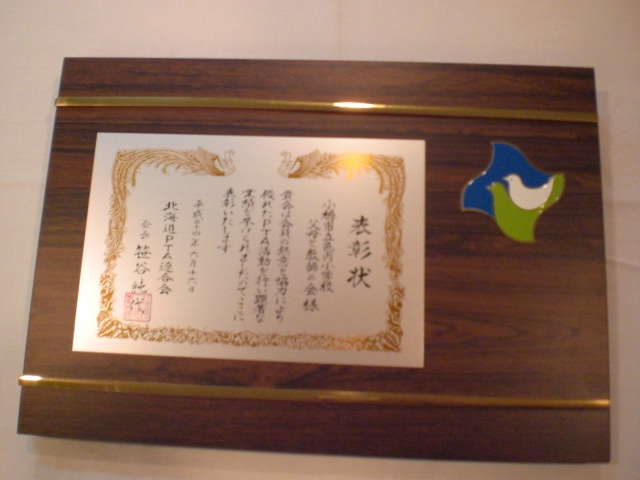 表彰状
小樽市立長内小学校
父母と教師の会様
貴会は会員の熱意と協力により
優れたPTA活動を行い顕著な
業績を挙げられましたのでここに
表彰いたします
平成二十四年六月十六日
北海道PTA連合会
会長 笹谷純代